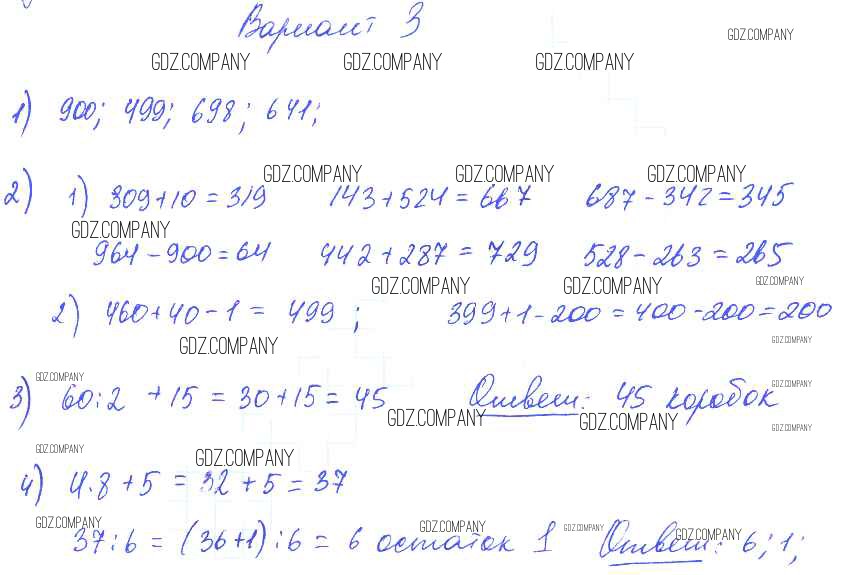 Вариант 3
GDZ.COMPANY
GDZ.COMPANY GDZ.COMPANY GDZ.COMPANY
1) 900; 499; 698; 641;
GDZ.COMPANY GDZ.COMPANY GDZ.COMPANY
2) 1) 309+10=319 143+524=667 687-342=345
GDZ.COMPANY
964-900=64 442+287=729 528-263=265
GDZ.COMPANY GDZ.COMPANY GDZ.COMPANY
2) 460+40-1= 499; 399+1-200=400-200=200
GDZ.COMPANY GDZ.COMPANY
GDZ.COMPANY GDZ.COMPANY
3) 60:2 +15=30+15=45 Ответ: 45 коробок
GDZ.COMPANY GDZ.COMPANY GDZ.COMPANY
GDZ.COMPANY GDZ.COMPANY
4) 4.8+5=32+5=37
GDZ.COMPANY GDZ.COMPANY GDZ.COMPANY GDZ.COMPANY
37:6=(36+1):6=6 остаток 1 Ответ: 6; 1;